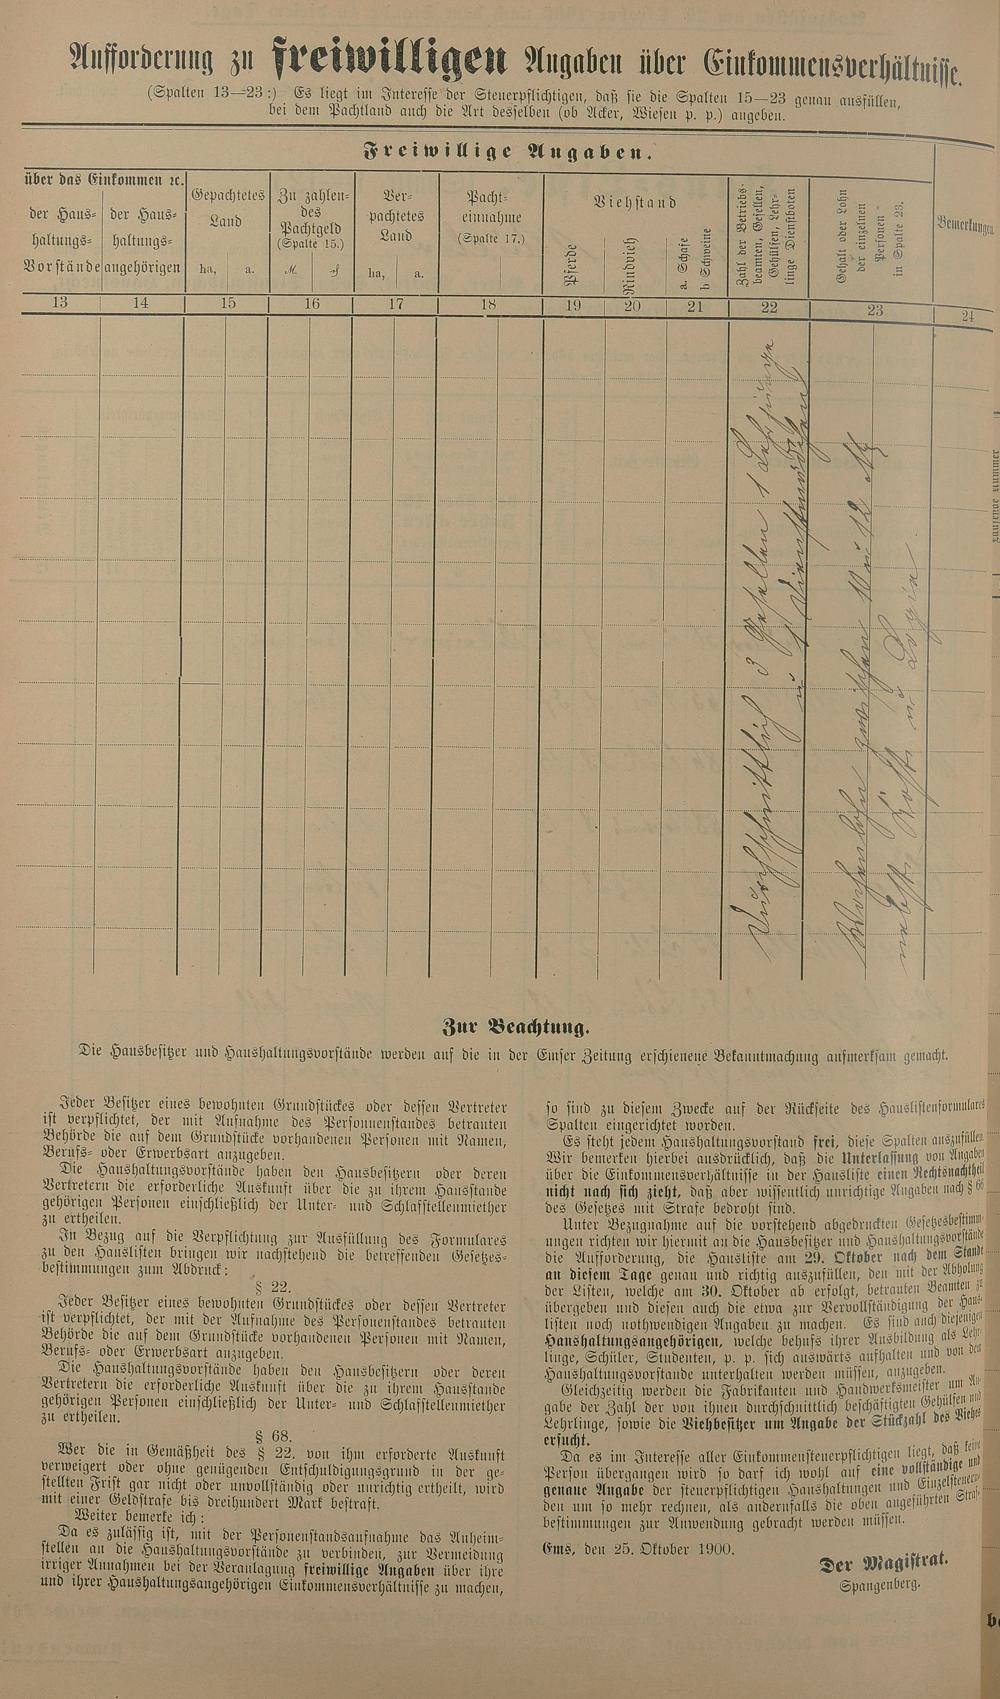 Aufforderung zu freiwilligen Angaben über Einkommensverhältnisse.
(Spalten 13—23:) Es liegt im Interesse der Steuerpflichtigen, daß sie die Spalten 15—23 genau ausfüllen,
bei dem Pachtland auch die Art desselben (ob Acker, Wiesen p. p.) angeben.
Freiwillige Angaben.
über das Einkommen ꝛc.
der Haus-
haltungs-
Vorstände
der Haus-
haltungs-
angehörigen
Gepachtetes
Land
ha, a.
Zu zahlen-
des
Pachtgeld
(Spalte 15.)
M. ₰
Ver-
pachtetes
Land
ha, a.
Pacht-
einnahme
(Spalte 17.)
Viehstand
Pferde
Rindvieh
a. Schafe
b Schweine
Zahl der Betriebs-
beamten, Gesellen,
Gehülfen, Lehr-
linge Dienstboten
Gehalt oder Lohn
der einzelnen
Personen
in Spalte 23.
Bemerkungen
13 14 15 16 17 18 19 20 21 22 23 24
Durchschnittlich 3 Gesellen 1 Lehrjunge
u 1 Dienstmädchen
Wochenlohn zwischen 10 u 12 M
nebst Kost u Logie.
Zur Beachtung.
Die Hausbesitzer und Haushaltungsvorstände werden auf die in der Emser Zeitung erschienene Bekanntmachung aufmerksam gemacht.
Jeder Besitzer eines bewohnten Grundstückes oder dessen Vertreter
ist verpflichtet, der mit Aufnahme des Personenstandes betrauten
Behörde die auf dem Grundstücke vorhandenen Personen mit Namen,
Berufs- oder Erwerbsart anzugeben.
Die Haushaltungsvorstände haben den Hausbesitzern oder deren
Vertretern die erforderliche Auskunft über die zu ihrem Hausstande
gehörigen Personen einschließlich der Unter- und Schlafstellenmiether
zu ertheilen.
In Bezug auf die Verpflichtung zur Ausfüllung des Formulares
zu den Hauslisten bringen wir nachstehend die betreffenden Gesetzes-
bestimmungen zum Abdruck:
§ 22.
Jeder Besitzer eines bewohnten Grundstückes oder dessen Vertreter
ist verpflichtet, der mit der Aufnahme des Personenstandes betrauten
Behörde die auf dem Grundstücke vorhandenen Personen mit Namen,
Berufs- oder Erwerbsart anzugeben.
Die Haushaltungsvorstände haben den Hausbesitzern oder deren
Vertretern die erforderliche Auskunft über die zu ihrem Hausstande
gehörigen Personen einschließlich der Unter- und Schlafstellenmiether
zu ertheilen.
§ 68.
Wer die in Gemäßheit des § 22. von ihm erforderte Auskunft
verweigert oder ohne genügenden Entschuldigungsgrund in der ge-
stellten Frist gar nicht oder unvollständig oder unrichtig ertheilt, wird
mit einer Geldstrafe bis dreihundert Mark bestraft.
Weiter bemerke ich:
Da es zulässig ist, mit der Personenstandsaufnahme das Anheim-
stellen an die Haushaltungsvorstände zu verbinden, zur Vermeidung
irriger Annahmen bei der Veranlagung freiwillige Angaben über ihre
und ihrer Haushaltungsangehörigen Einkommensverhältnisse zu machen,
so sind zu diesem Zwecke auf der Rückseite des Hauslistenformulares
Spalten eingerichtet worden.
Es steht jedem Haushaltungsvorstand frei, diese Spalten auszufüllen.
Wir bemerken hierbei ausdrücklich, daß die Unterlassung von Angaben
über die Einkommensverhältnisse in der Hausliste einen Rechtsnachtheil
nicht nach sich zieht, daß aber wissentlich unrichtige Angaben nach § 66
des Gesetzes mit Strafe bedroht sind.
Unter Bezugnahme auf die vorstehend abgedruckten Gesetzesbestimm-
ungen richten wir hiermit an die Hausbesitzer und Haushaltungsvorstände
die Aufforderung, die Hausliste am 29. Oktober nach dem Stande
an diesem Tage genau und richtig auszufüllen, den mit der Abholung
der Listen, welche am 30. Oktober ab erfolgt, betrauten Beamten zu
übergeben und diesen auch die etwa zur Vervollständigung der Haus-
listen noch nothwendigen Angaben zu machen. Es sind auch diejenigen
Haushaltungsangehörigen, welche behufs ihrer Ausbildung als Lehr-
linge, Schüler, Studenten, p. p. sich auswärts aufhalten und von den
Haushaltungsvorstände unterhalten werden müssen, anzugeben.
Gleichzeitig werden die Fabrikanten und Handwerksmeister um An-
gabe der Zahl der von ihnen durchschnittlich beschäftigten Gehülfen und
Lehrlinge, sowie die Viehbesitzer um Angabe der Stückzahl des Viehes
ersucht.
Da es im Interesse aller Einkommensteuerpflichtigen liegt, daß keine
Person übergangen wird so darf ich wohl auf eine vollständige und
genaue Angabe der steuerpflichtigen Haushaltungen und Einzelsteuern-
den um so mehr rechnen, als andernfalls die oben angeführten Straf-
bestimmungen zur Anwendung gebracht werden müssen.
Ems, den 25. Oktober 1900.
Der Magistrat.
Spangenberg.